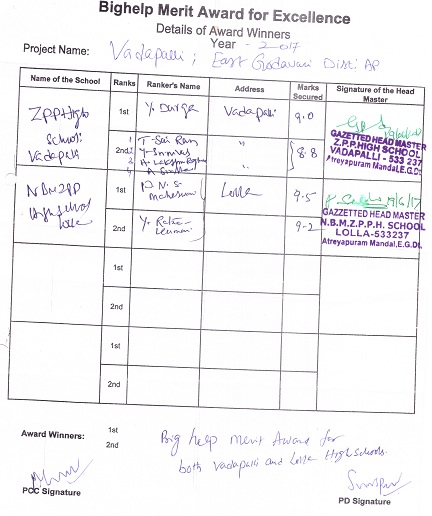 Bighelp Merit Award for Excellence
Details of Award Winners
Year - 2017
Project Name: Vadapalli ; East Godavari Dist: AP
Name of the School Ranks Ranker's Name Address Marks Secured Signature of the Head Master
ZPPHigh School: Vadapalli
1st Y. Durga Vadapalli 9.0
2nd
1 T. Sai Ram "
2
3
4
8.8
GAZETTED HEAD MASTER
Z.P.P.HIGH SCHOOL
VADAPALLI - 533 237
Atreyapuram Mandal,E.G.Dt.
NBMZPP High School Lolla
1st P. N. S. Maheswari Lolla 9.5
2nd Y. Ratna Kumari 9.2
GAZZETTED HEAD MASTER
N.B.M.Z.P.P.H. SCHOOL
LOLLA-533237
Atreyapuram Mandal,E.G.Dt.
1st
2nd
1st
2nd
Award Winners: 1st
2nd
Big help merit Award for
both Vadapalli and Lolla High Schools.
PCC Signature
PD Signature